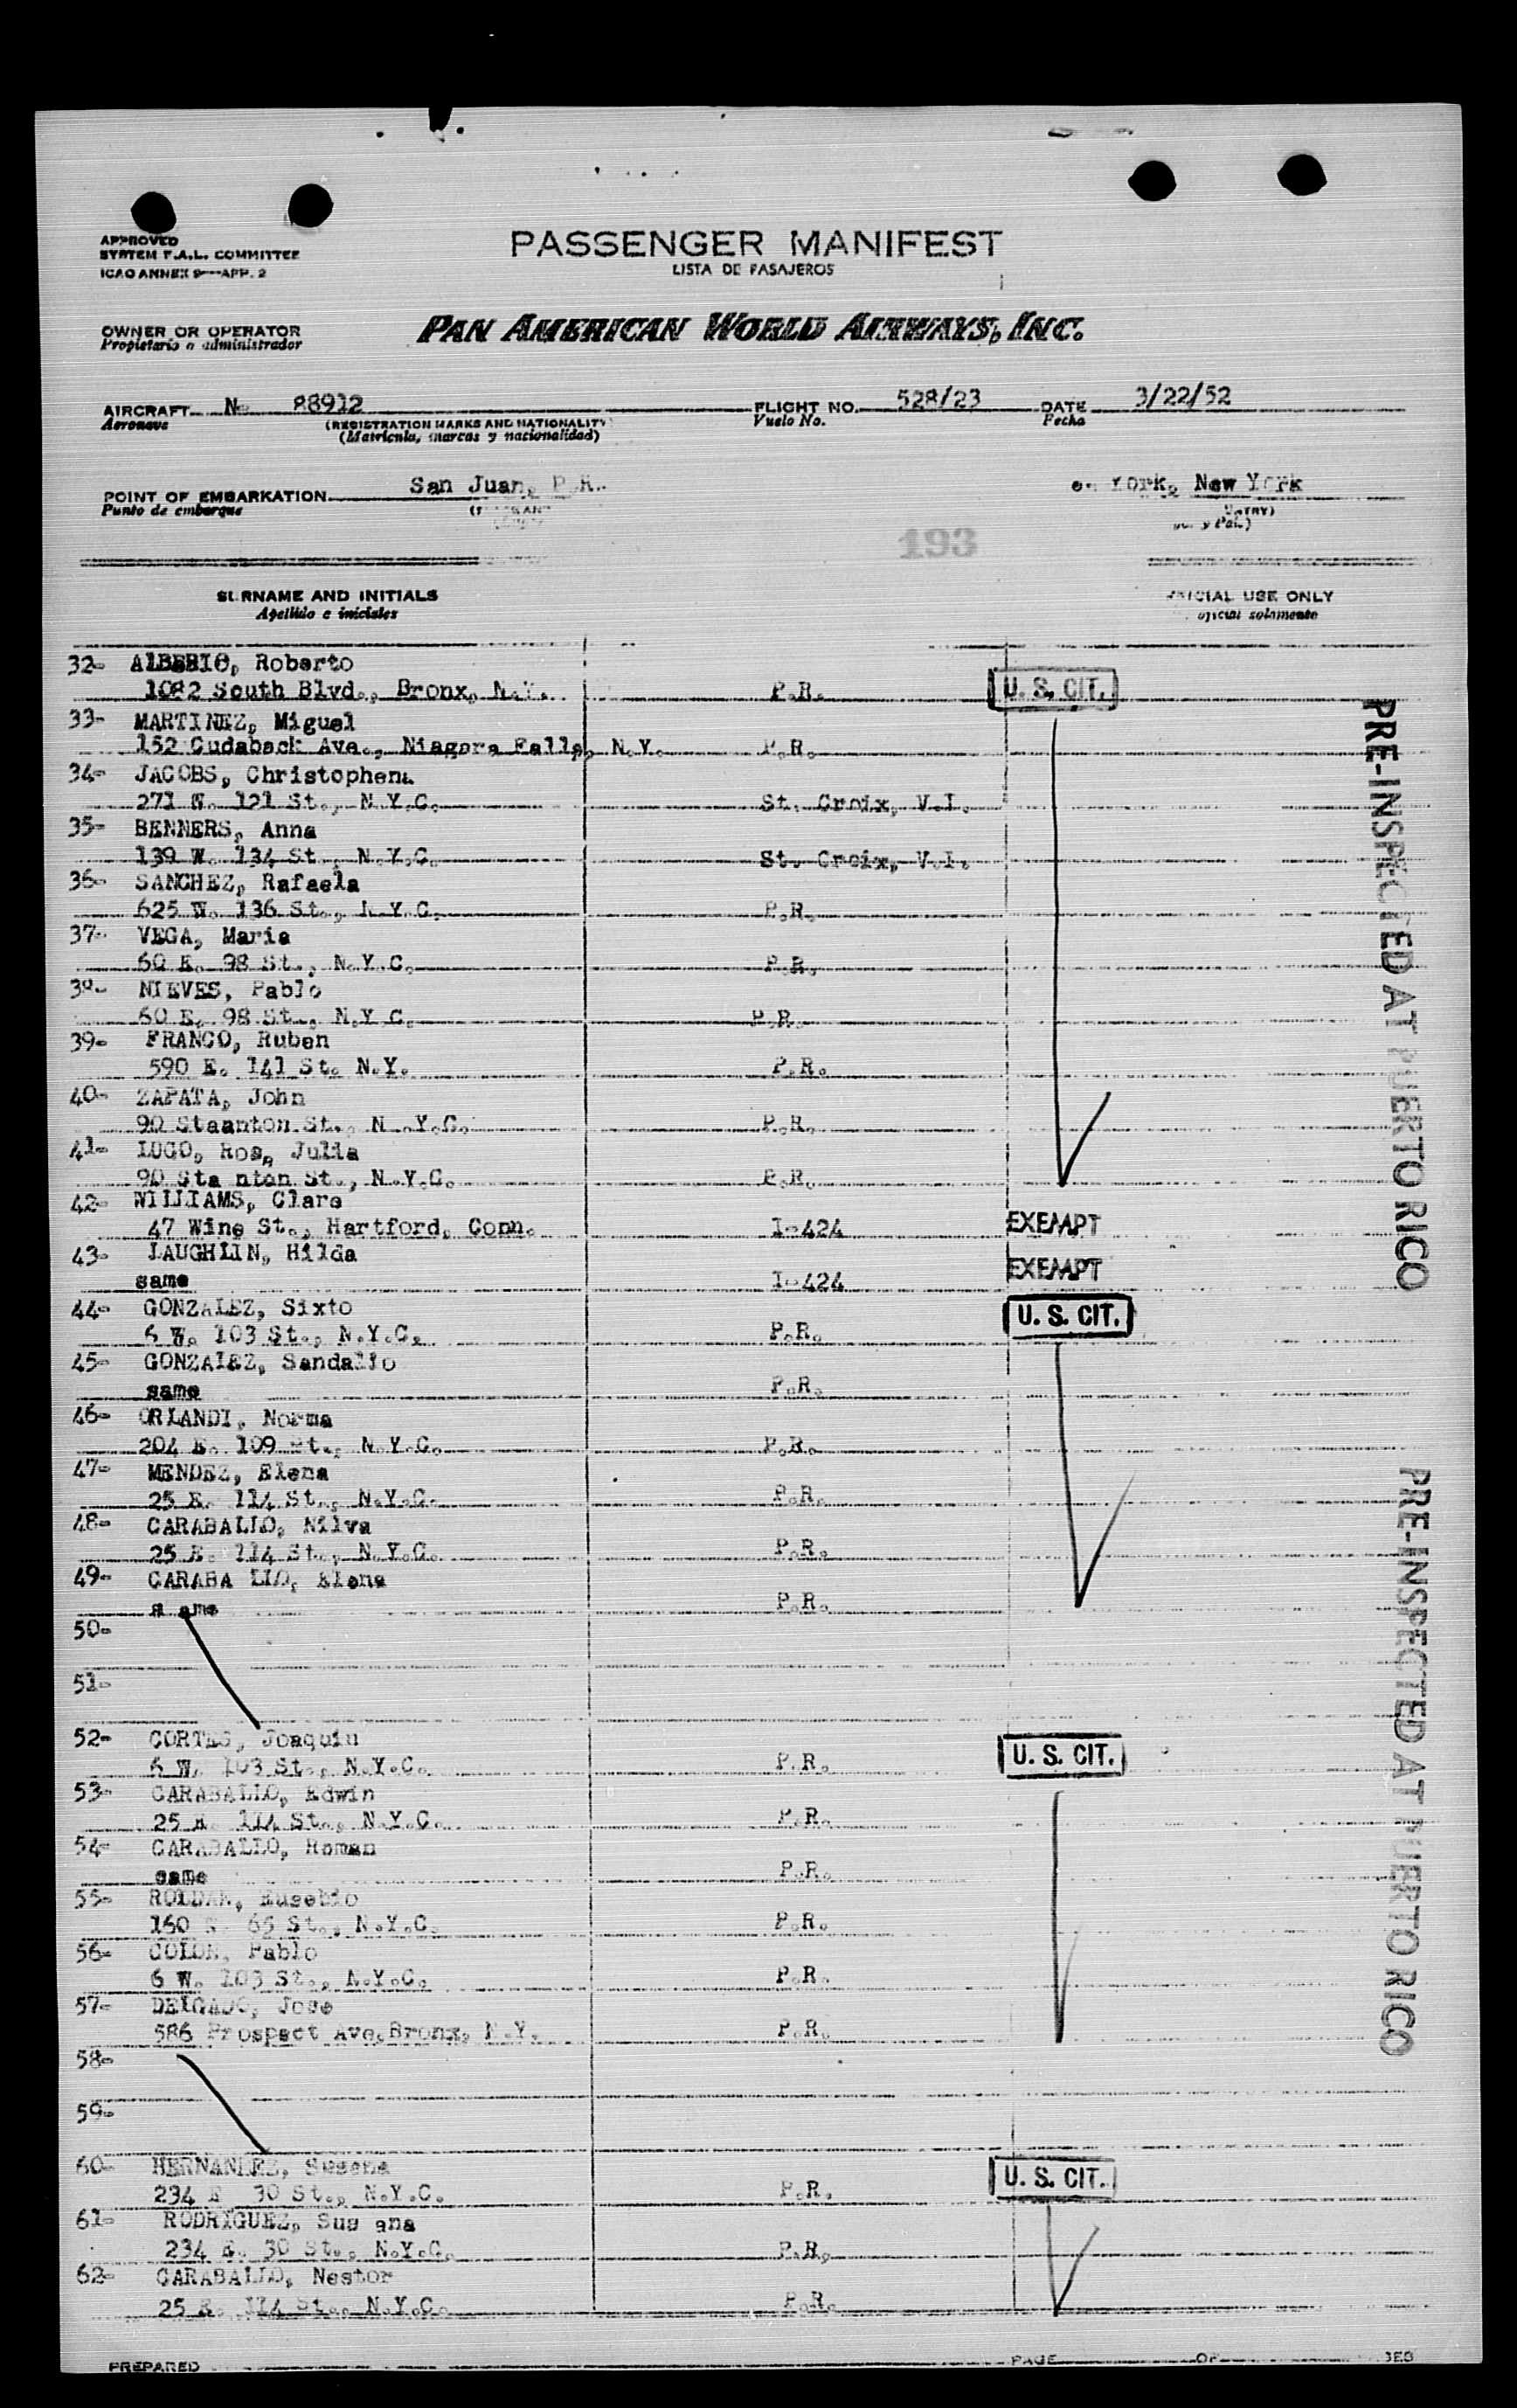 APPROVED
SYSTEM F.A.L. COMMITTEE
ICAO ANNEX 9—APP. 2
PASSENGER MANIFEST
LISTA DE PASAJEROS
OWNER OR OPERATOR
Propietario o administrador
PAN AMERICAN WORLD AIRWAYS, INC.
AIRCRAFT N 88912 FLIGHT NO. 528/23 DATE 3/22/52
Aeronave (REGISTRATION MARKS AND NATIONALITY) Vuelo No. Fecha
(Matrícula, marcas y nacionalidad)
POINT OF EMBARKATION San Juan, P.R. York, New York
Punto de embarque
193
SURNAME AND INITIALS USE ONLY
Apellido e iniciales solamente
32- ALBERIO, Roberto
1082 South Blvd., Bronx, N.Y. P.R. U. S. CIT.
33- MARTINEZ, Miguel
152 Cudaback Ave., Niagara Falls, N.Y. P.R.
34- JACOBS, Christophena
271 W. 121 St., N.Y.C. St. Croix, V.I.
35- BENNERS, Anna
139 W. 134 St., N.Y.C. St. Croix, V.I.
36- SANCHEZ, Rafaela
625 W. 136 St., N.Y.C. P.R.
37- VEGA, Maria
60 E. 98 St., N.Y.C. P.R.
38- NIEVES, Pablo
60 E. 98 St., N.Y.C. P.R.
39- FRANCO, Ruben
590 E. 141 St. N.Y. P.R.
40- ZAPATA, John
90 Staanton St., N.Y.C. P.R.
41- LUGO, Ros, Julia
90 Sta nton St., N.Y.C. P.R.
42- WILLIAMS, Clare
47 Wine St., Hartford, Conn. I-424 EXEMPT
43- LAUGHLIN, Hilda
same I-424 EXEMPT
44- GONZALEZ, Sixto U. S. CIT.
6 W. 103 St., N.Y.C. P.R.
45- GONZALEZ, Sandalio
same P.R.
46- ORLANDI, Norma
204 E. 109 St., N.Y.C. P.R.
47- MENDEZ, Elena
25 E. 114 St., N.Y.C. P.R.
48- CARABALLO, Nilva
25 E. 114 St., N.Y.C. P.R.
49- CARABA LLO, Elena
s ame P.R.
50-
51-
52- CORTES, Joaquin U. S. CIT.
6 W. 103 St., N.Y.C. P.R.
53- CARABALLO, Edwin
25 E. 114 St., N.Y.C. P.R.
54- CARABALLO, Roman
same P.R.
55- ROLDAN, Eusebio
160 65 St., N.Y.C. P.R.
56- COLON, Pablo
6 W. 103 St., N.Y.C. P.R.
57- DELGADO, Jose
586 Prospect Ave. Bronx, N.Y. P.R.
58-
59-
60- HERNANDEZ, Susana U. S. CIT.
234 E 30 St., N.Y.C. P.R.
61- RODRIGUEZ, Sus ana
234 E. 30 St., N.Y.C. P.R.
62- CARABALLO, Nestor
25 E. 114 St., N.Y.C. P.R.
PREPARED PAGE OF
PRE-INSPECTED AT PUERTO RICO
PRE-INSPECTED AT PUERTO RICO